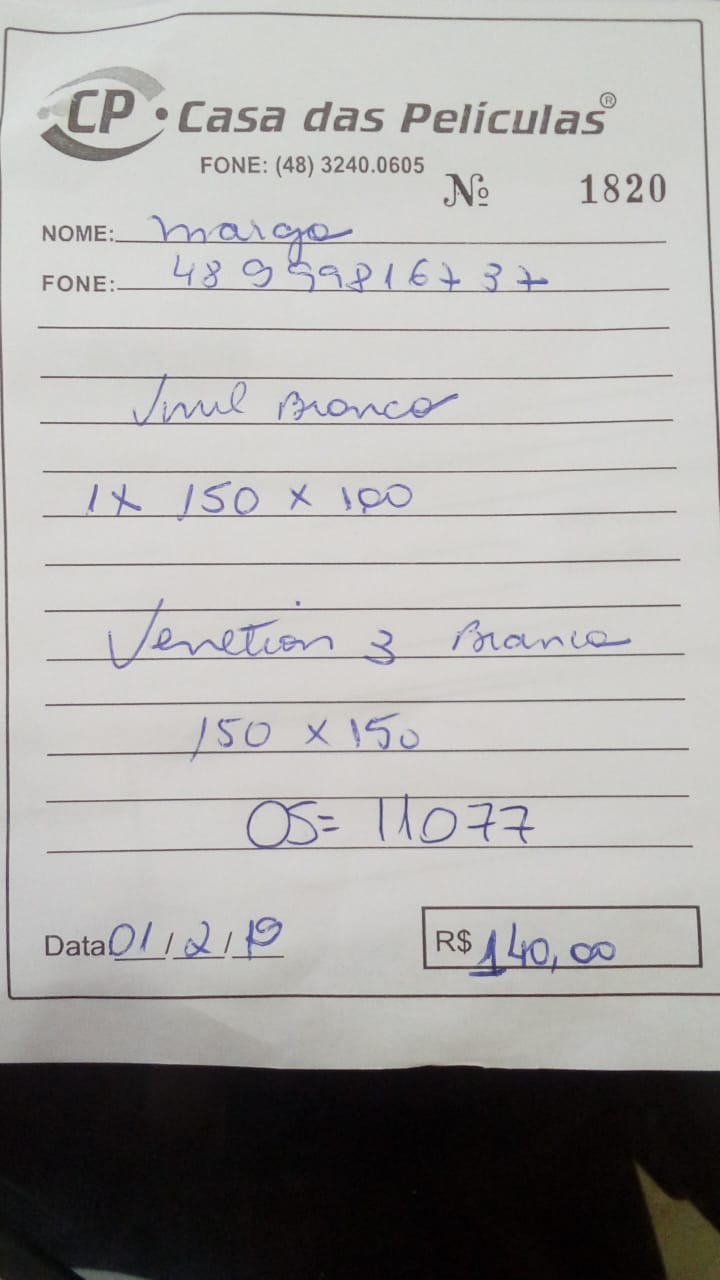 CP • Casa das Películas®
FONE: (48) 3240.0605
Nº 1820
NOME: Margo
FONE: 48 9 99816737
Vinil Branco
1x 150 x 100
Venetian 3 Branco
150 x 150
OS= 11077
Data 01/2/19
R$ 140,00